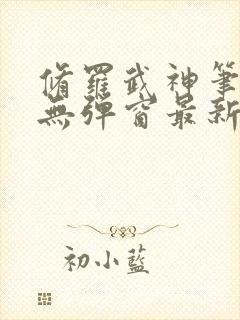 脩羅武神筆
無彈窗最新
初小藍